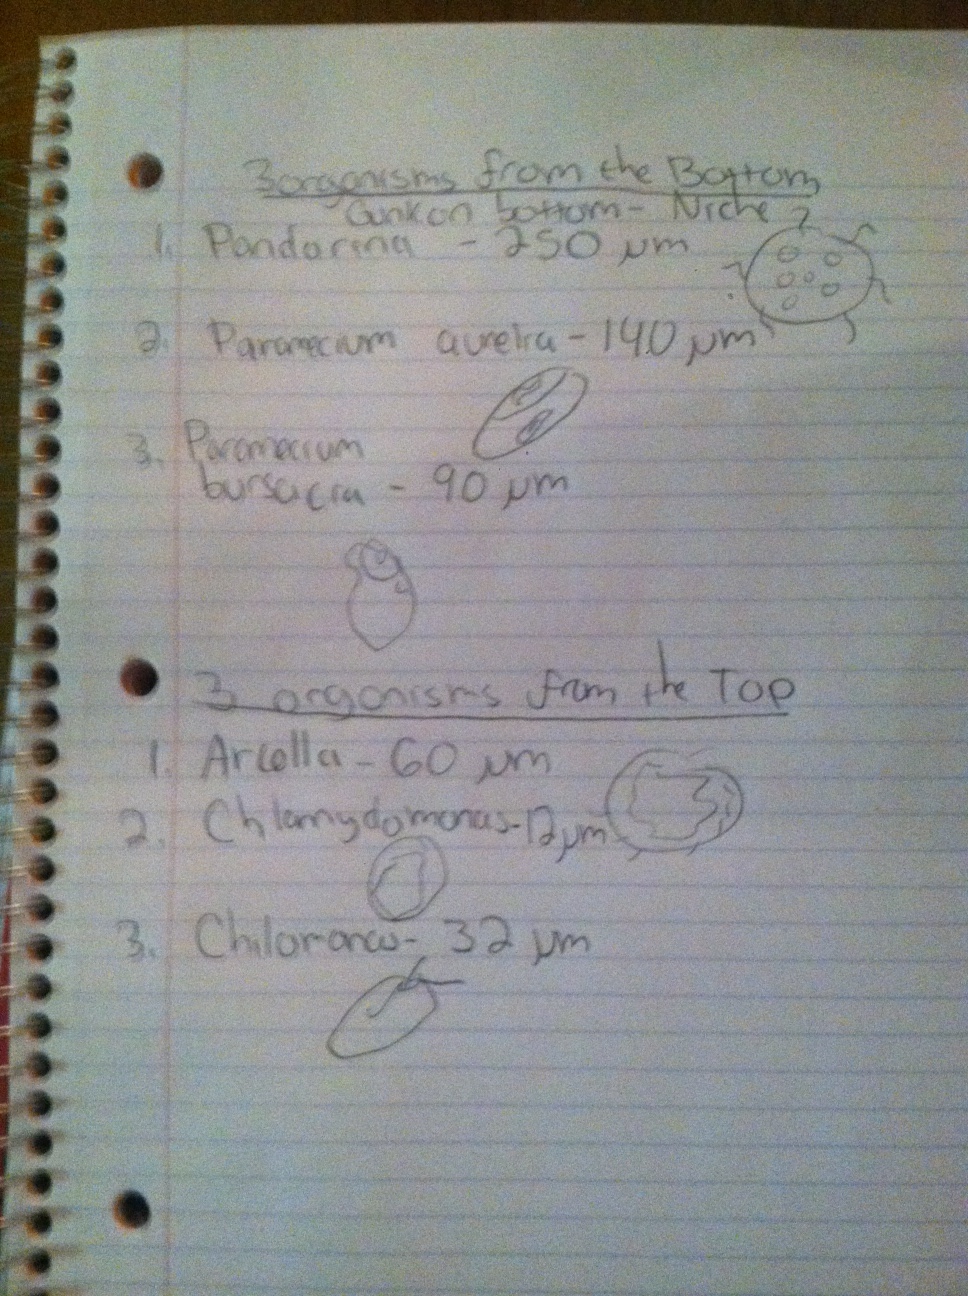 3 organisms from the Bottom
Gunk on bottom - Niche
1. Pandorina - 250 μm
2. Paramecium aurelia - 140 μm
3. Paramecium
bursacia - 90 μm
3 organisms from the TOP
1. Arcella - 60 μm
2. Chlamydomonas - 12 μm
3. - 32 μm